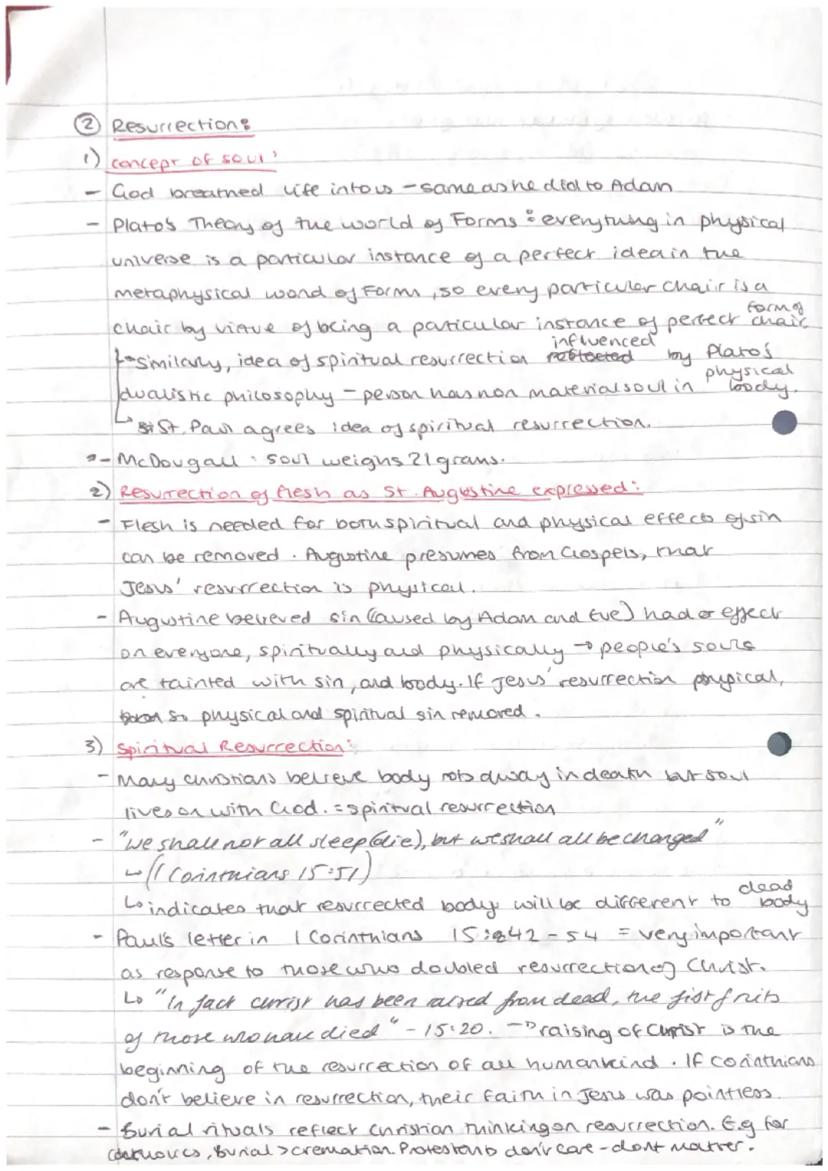 ② Resurrection:
1) concept of soul:
- God breathed life into us - same as he did to Adam
- Plato's Theory of the world of Forms: everything in physical
universe is a particular instance of a perfect idea in the
metaphysical world of Forms, so every particular chair is a
form of
chair by virtue of being a particular instance of perfect chair
influenced
↳ Similarly, idea of spiritual resurrection by Plato's
physical
dualistic philosophy - person has non material soul in body.
↳ St. Paul agrees idea of spiritual resurrection.
- McDougall : soul weighs 21 grams.
2) Resurrection of flesh as St. Augustine expressed:
- Flesh is needed for both spiritual and physical effects of sin
can be removed. Augustine presumes from Gospels, that
Jesus' resurrection is physical.
- Augustine believed sin (caused by Adam and Eve) had or effect
on everyone, spiritually and physically → people's souls
are tainted with sin, and body. If Jesus' resurrection physical,
so physical and spiritual sin removed.
3) Spiritual Resurrection:
- Many christians believe body rots away in death but soul
lives on with God. = spiritual resurrection
- "we shall not all sleep (die), but we shall all be changed"
↳ (1 Corinthians 15:51)
dead
↳ indicates that resurrected body will be different to body
- Paul's letter in 1 Corinthians 15:42-54 = very important
as response to those who doubled resurrection of Christ.
↳ "In fact christ has been raised from dead, the fist fruits
of those who have died" - 15:20. → raising of Christ is the
beginning of the resurrection of all humankind. If corinthians
don't believe in resurrection, their faith in Jesus was pointless.
- Burial rituals reflect christian thinking on resurrection. E.g for
catholics, Burial > cremation. Protestants don't care - dont matter.